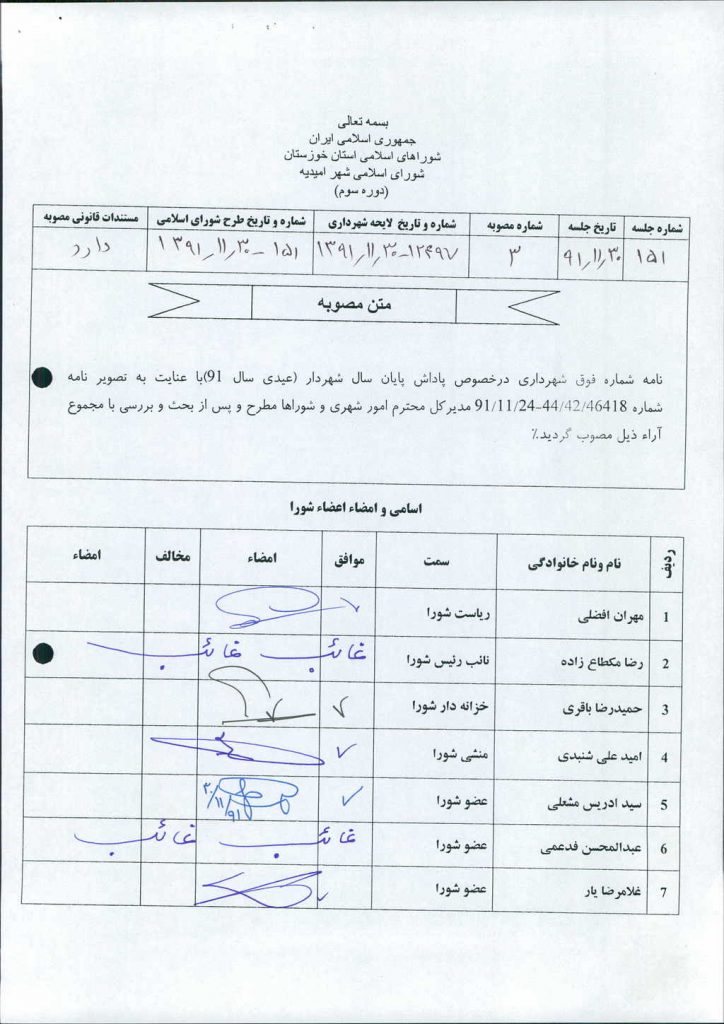 بسمه تعالی
جمهوری اسلامی ایران
شوراهای اسلامی استان خوزستان
شورای اسلامی شهر امیدیه
(دوره سوم)
شماره جلسه تاریخ جلسه شماره مصوبه شماره و تاریخ لایحه شهرداری شماره و تاریخ طرح شورای اسلامی مستندات قانونی مصوبه
۱۵۱ ۹۱/۱۱/۳۰ ۳ ۱۳۹۱/۱۱/۳۰-۱۲۴۹۷ ۱۵۱-۱۳۹۱/۱۱/۳۰ دارد
متن مصوبه
نامه شماره فوق شهرداری درخصوص پاداش پایان سال شهردار (عیدی سال 91)با عنایت به تصویر نامه
شماره 44/42/46418-91/11/24 مدیرکل محترم امور شهری و شوراها مطرح و پس از بحث و بررسی با مجموع
آراء ذیل مصوب گردید.٪
اسامی و امضاء اعضاء شورا
ردیف نام ونام خانوادگی سمت موافق امضاء مخالف امضاء
1 مهران افضلی ریاست شورا
2 رضا مکطاع زاده نائب رئیس شورا غائب غائب
3 حمیدرضا باقری خزانه دار شورا
4 امید علی شنبدی منشی شورا
5 سید ادریس مشعلی عضو شورا ۳۰/۱۱/۹۱
6 عبدالمحسن فدعمی عضو شورا غائب غائب
7 غلامرضا یار عضو شورا